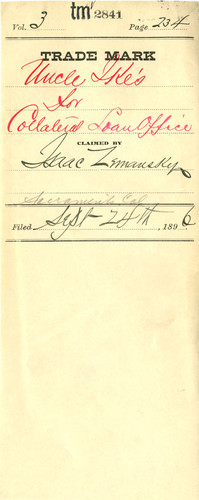 tm 2841
Vol. 3 Page 234
TRADE MARK
Uncle Ike's
for
Collateral Loan Office
CLAIMED BY
Isaac Zemansky
Sacramento Cal
Filed Sept 24th, 1896